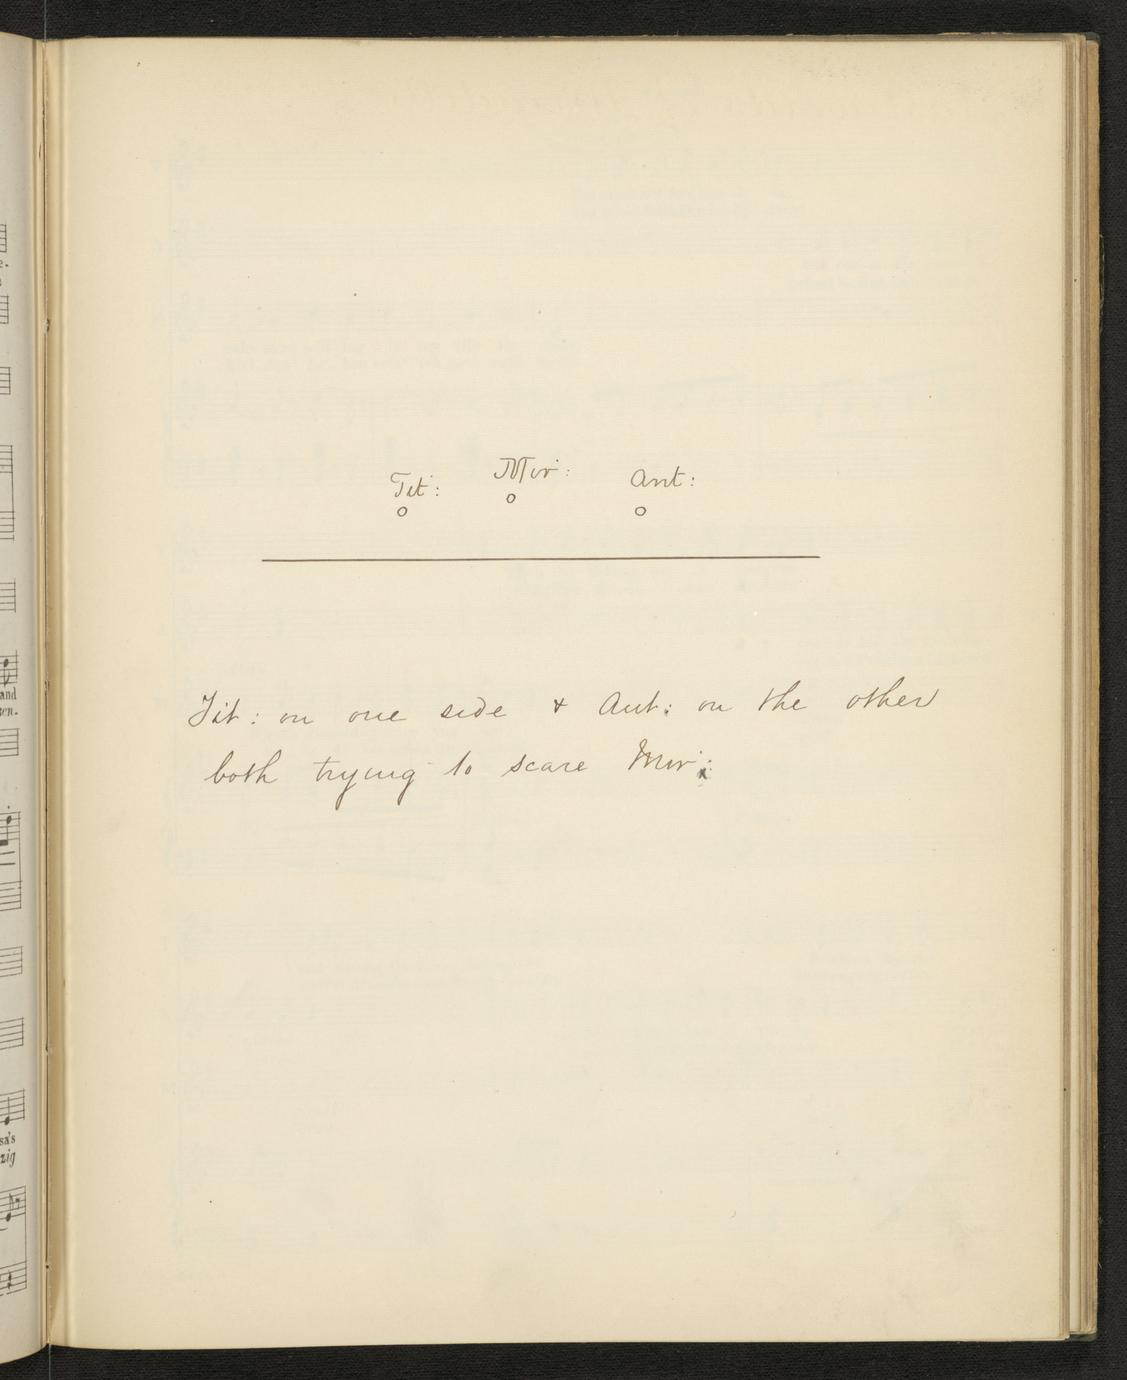 Tit: Mir: Ant:
Tit: on one side & Ant: on the other
both trying to scare Mir:
and
sa's
zig